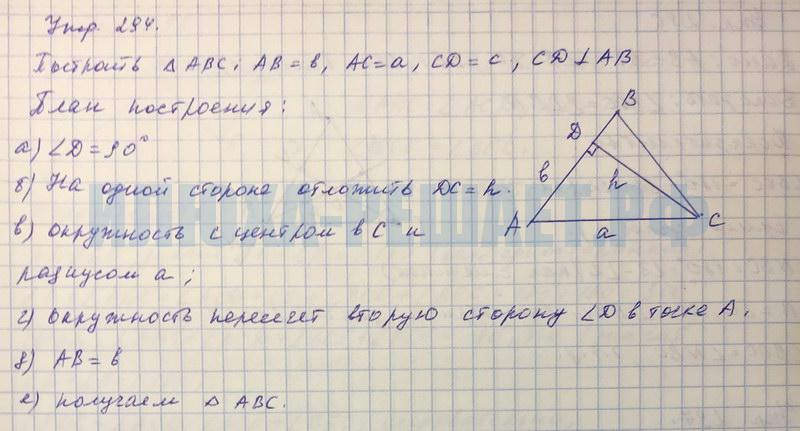 Упр. 294.
Построить △ ABC: AB = b, AC = a, CD = c, CD ⊥ AB
План построения:
а) ∠D = 90°
б) На одной стороне отложить DC = h.
в) окружность с центром в C и
радиусом a;
г) окружность пересечет вторую сторону ∠D в точке A.
д) AB = b
е) получаем △ ABC.
B
D
b
h
A
a
C
ИНЮХА-РЕШАЕТ.РФ